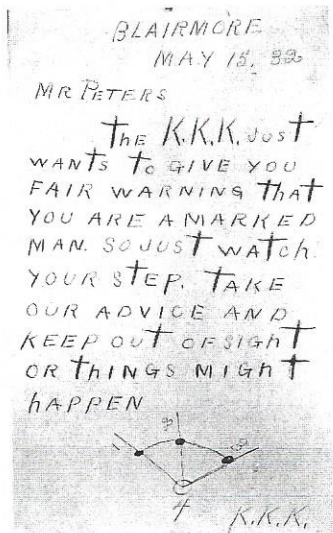 BLAIRMORE
MAY 15, 32
MR PETERS
The K.K.K. JUST
WANTS TO GIVE YOU
FAIR WARNING That
YOU ARE A MARKED
MAN. SO JUST WATCH
YOUR STEP. TAKE
OUR ADVICE AND
KEEP OUT OF SIGhT
OR ThINGS MIGhT
hAPPEN
4
K.K.K.